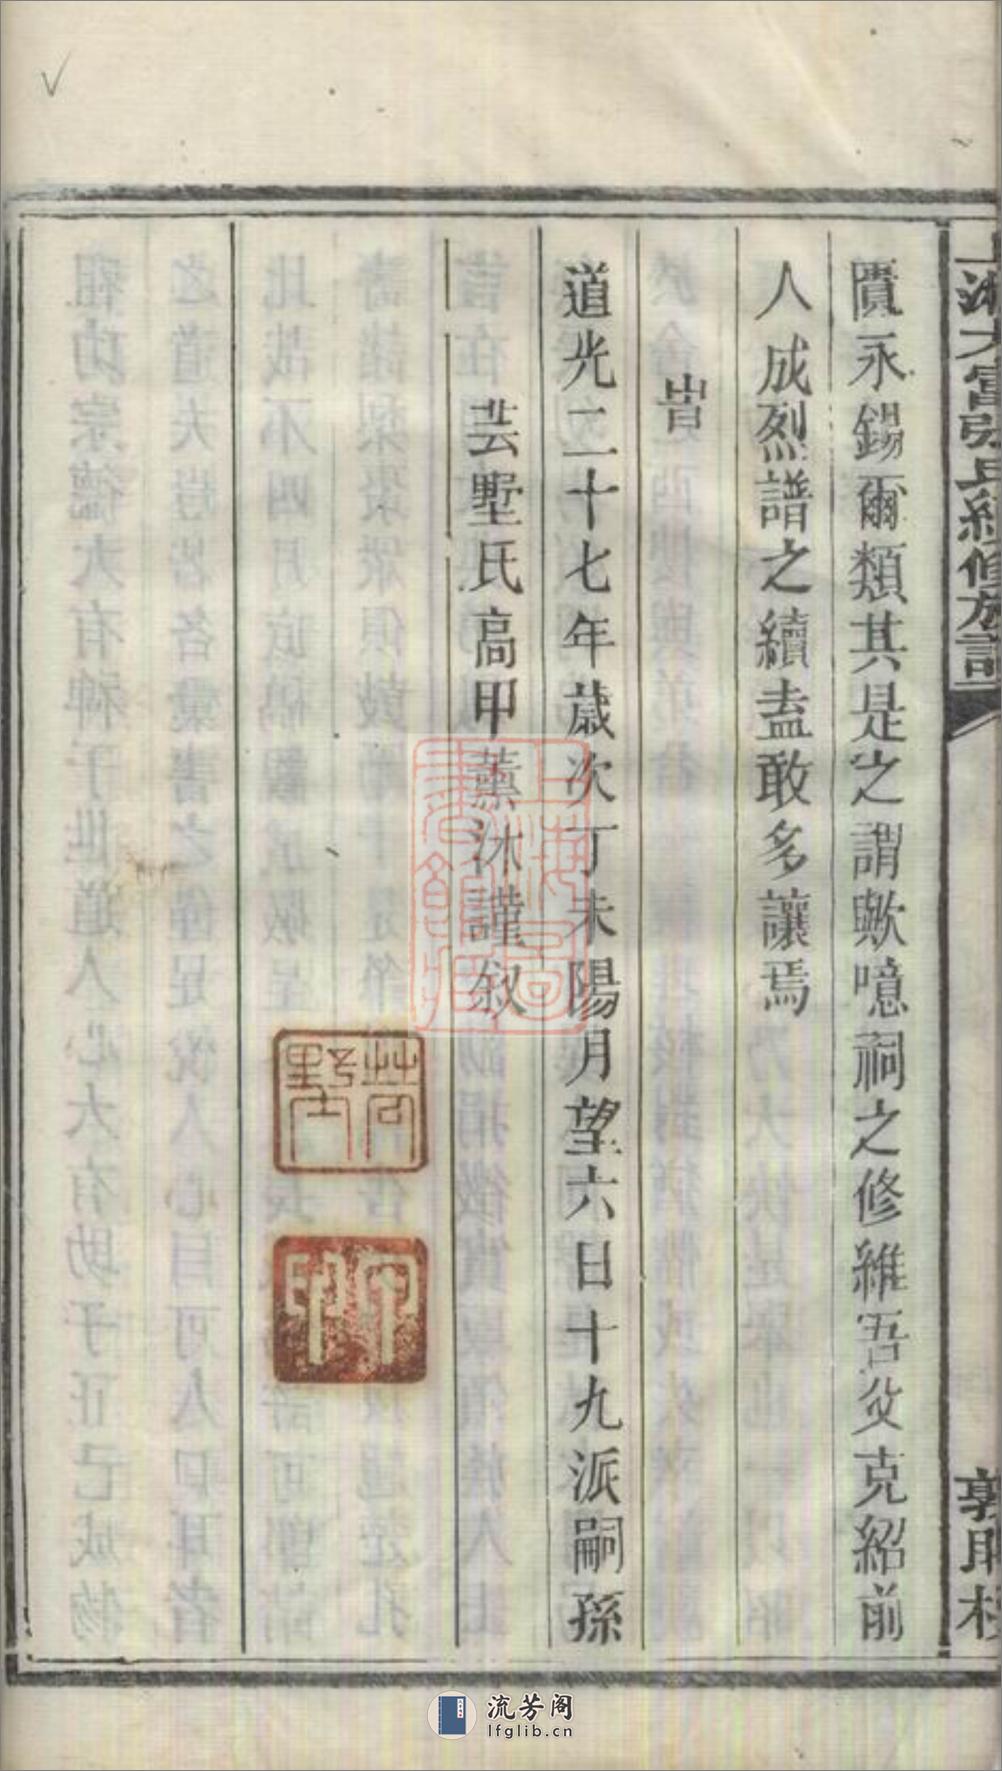 匱永錫爾類其是之謂歟噫祠之修維吾父克紹前
人成烈譜之續盍敢多讓焉
旹
道光二十七年歲次丁未陽月望六日十九派嗣孫
芸墅氏高甲薰沐謹叙
上湘大富張氏續修族譜
敦睦
上海圖書館藏
流芳阁
lfglib.cn